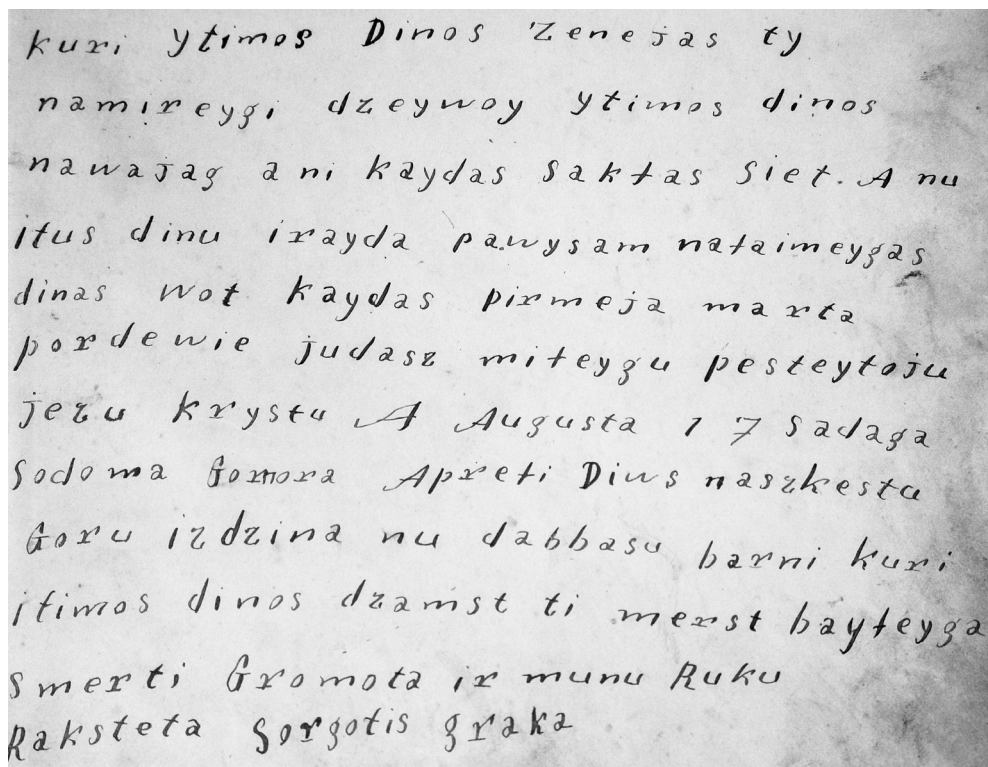 kuri ytimos Dinos Zenejas ty
namireygi dzeywoy ytimos dinos
nawajag ani kaydas Saktas Siet. A nu
itus dinu irayda pawysam nataimeygas
dinas wot kaydas pirmeja marta
pordewie judasz miteygu pesteytoju
jezu krystu A Augusta 17 Sadaga
Sodoma Gomora Apreti Diws naszkestu
Goru izdzina nu dabbasu barni kuri
itimos dinos dzamst ti merst bayteyga
Smerti Gromota ir munu Ruku
Raksteta Sorgotis graka